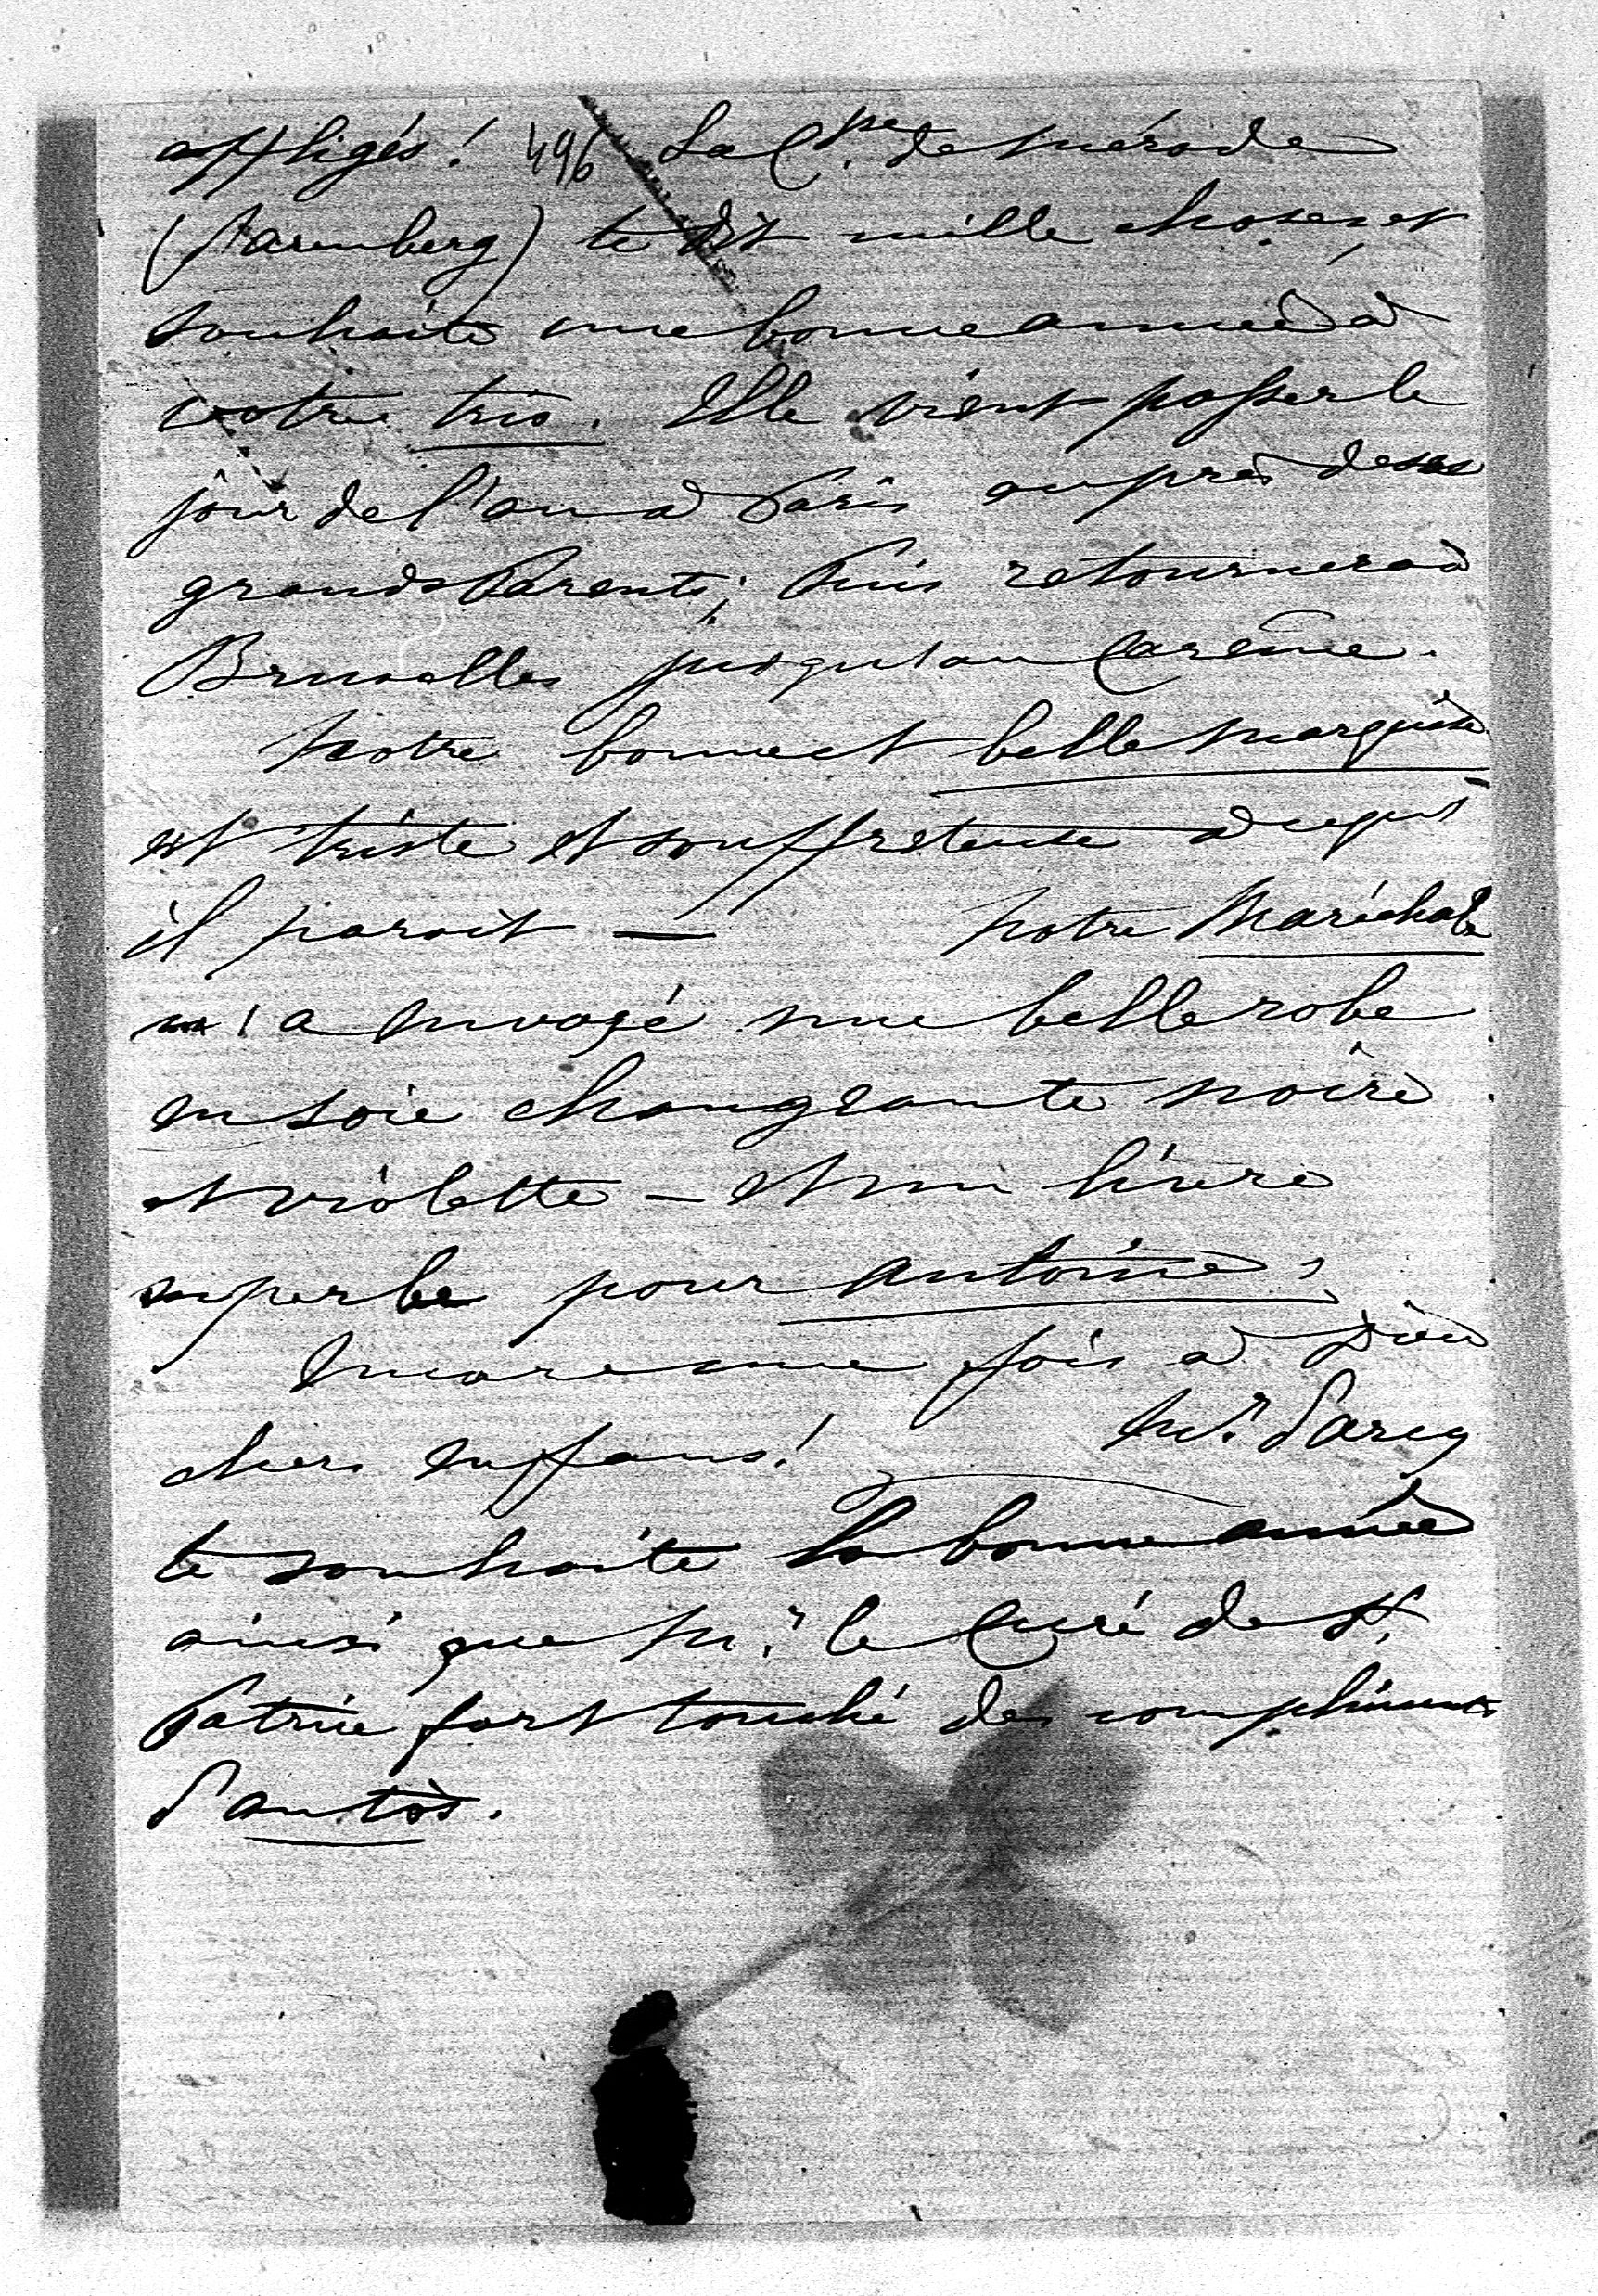 affligés! 496 La C^sse. de Mérode
(d'Aremberg) te dit mille choses et
souhaite une bonne année à
votre trio. Elle vient passer le
jour de l'an à Paris auprès de ses
grands Parents; Puis retournera à
Bruxelles jusqu'au Carême.
Notre bonne et belle Marquise
est triste et souffreteuse à ce qu'
il paroit — Notre Maréchale
m'a envoyé une belle robe
en soie changeante noire
et violette — et un livre
superbe pour Antoine,
Encore une fois à Dieu
chers enffans! M^r. Darcy
te souhaite la bonne année
ainsi que M.^r le Curé de St.
Patrice fort touché des compliments
d'Antos.